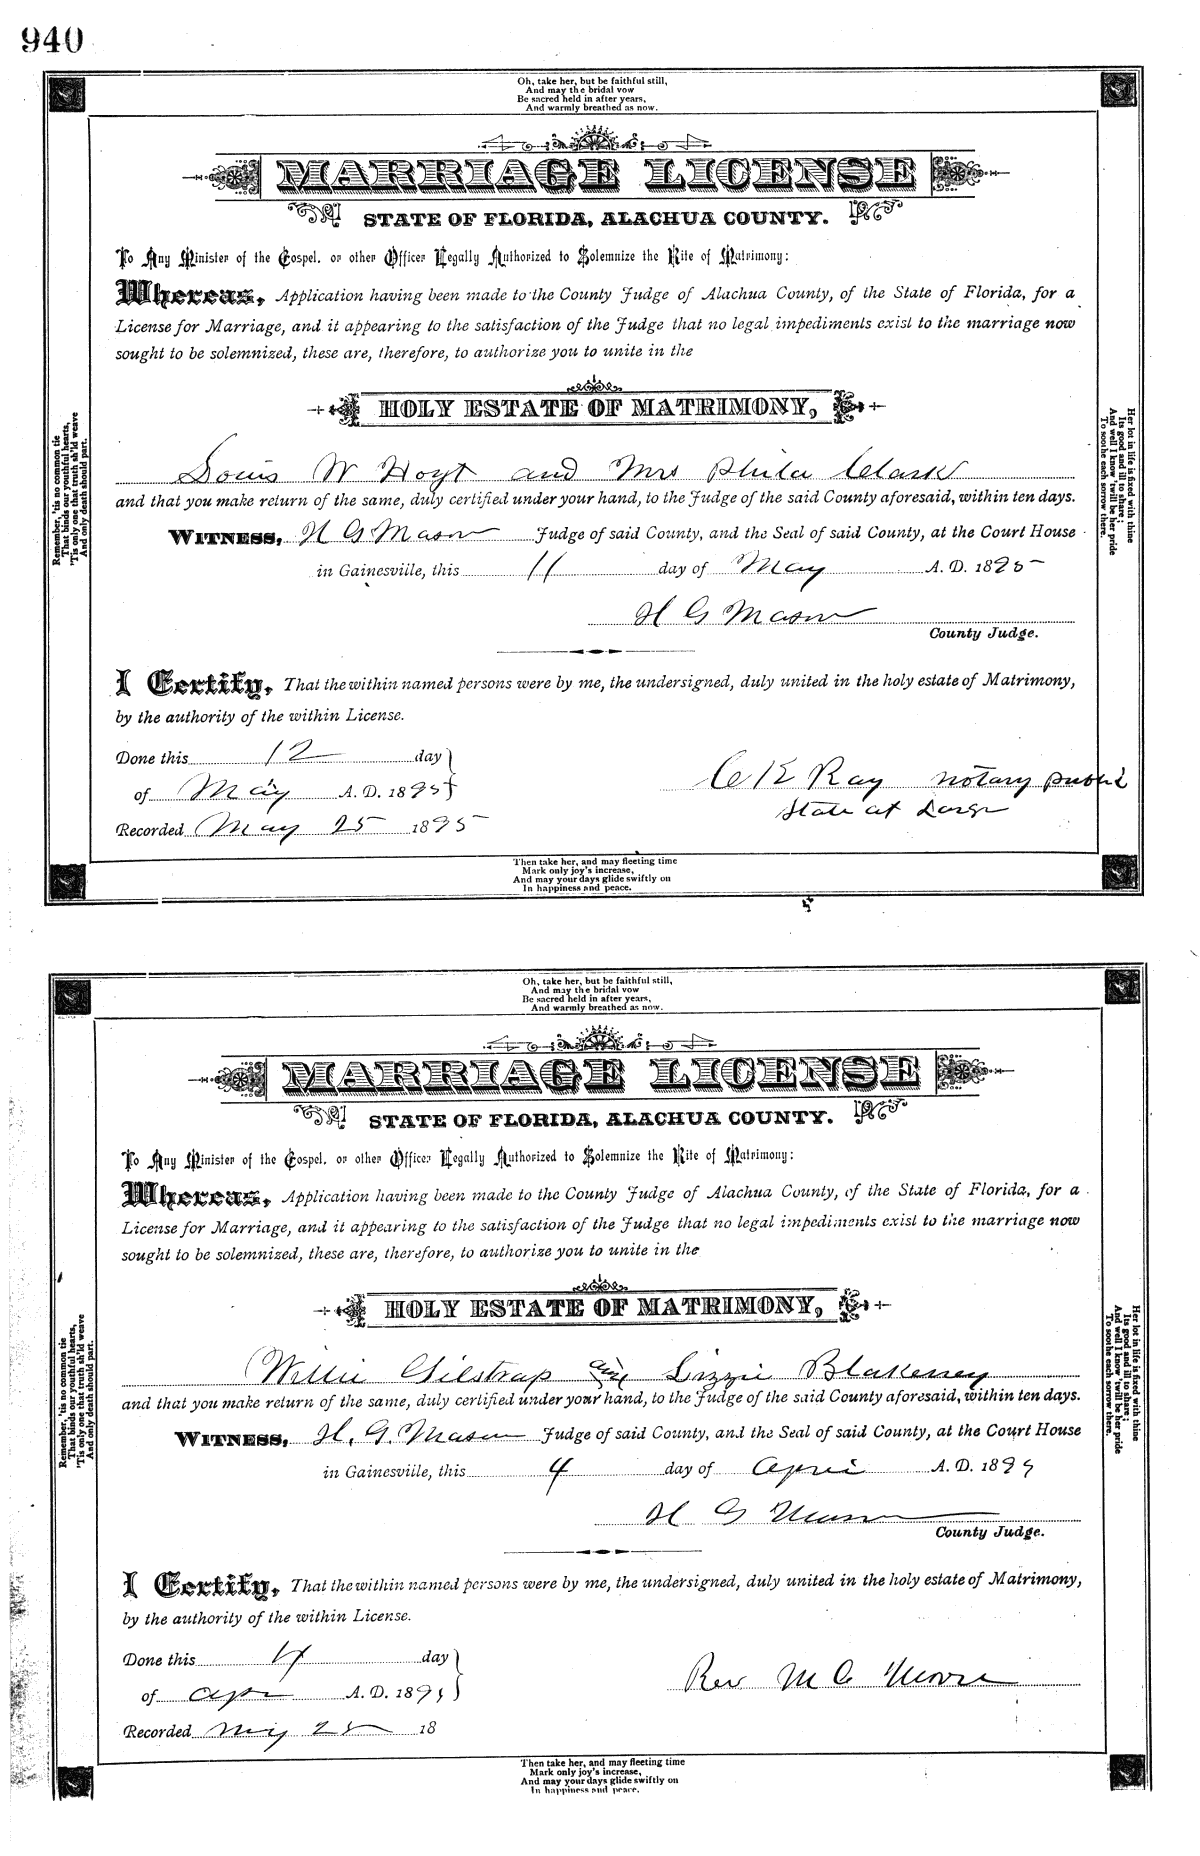 940
Oh, take her, but be faithful still,
And may the bridal vow
Be sacred held in after years,
And warmly breathed as now.
MARRIAGE LICENSE
STATE OF FLORIDA, ALACHUA COUNTY.
To Any Minister of the Gospel, or other Officer Legally Authorized to Solemnize the Rite of Matrimony:
Whereas, Application having been made to the County Judge of Alachua County, of the State of Florida, for a
License for Marriage, and it appearing to the satisfaction of the Judge that no legal impediments exist to the marriage now
sought to be solemnized, these are, therefore, to authorize you to unite in the
HOLY ESTATE OF MATRIMONY,
Louis W Hoyt and Mrs Phila Clark
and that you make return of the same, duly certified under your hand, to the Judge of the said County aforesaid, within ten days.
WITNESS, H G Mason Judge of said County, and the Seal of said County, at the Court House
in Gainesville, this 11 day of May A. D. 1895
H G Mason
County Judge.
I Certify, That the within named persons were by me, the undersigned, duly united in the holy estate of Matrimony,
by the authority of the within License.
Done this 12 day
of May A. D. 1895
C K Ray notary public
State at Large
Recorded May 25 1895
Remember, 'tis no common tie
That binds our youthful hearts,
'Tis only one that truth sh'ld weave
And only death should part.
Her lot in life is fixed with thine
Its good and ill to share;
And well I know 'twill be her pride
To soothe each sorrow there.
Then take her, and may fleeting time
Mark only joy's increase,
And may your days glide swiftly on
In happiness and peace.
Oh, take her, but be faithful still,
And may the bridal vow
Be sacred held in after years,
And warmly breathed as now.
MARRIAGE LICENSE
STATE OF FLORIDA, ALACHUA COUNTY.
To Any Minister of the Gospel, or other Officer Legally Authorized to Solemnize the Rite of Matrimony:
Whereas, Application having been made to the County Judge of Alachua County, of the State of Florida, for a
License for Marriage, and it appearing to the satisfaction of the Judge that no legal impediments exist to the marriage now
sought to be solemnized, these are, therefore, to authorize you to unite in the
HOLY ESTATE OF MATRIMONY,
Willie Gilstrap and Lizzie Blakeney
and that you make return of the same, duly certified under your hand, to the Judge of the said County aforesaid, within ten days.
WITNESS, H. G. Mason Judge of said County, and the Seal of said County, at the Court House
in Gainesville, this 4 day of April A. D. 1895
H G Mason
County Judge.
I Certify, That the within named persons were by me, the undersigned, duly united in the holy estate of Matrimony,
by the authority of the within License.
Done this 4 day
of Apr A. D. 1895
Rev M C Moore
Recorded May 25 18
Remember, 'tis no common tie
That binds our youthful hearts,
'Tis only one that truth sh'ld weave
And only death should part.
Her lot in life is fixed with thine
Its good and ill to share;
And well I know 'twill be her pride
To soothe each sorrow there.
Then take her, and may fleeting time
Mark only joy's increase,
And may your days glide swiftly on
In happiness and peace.